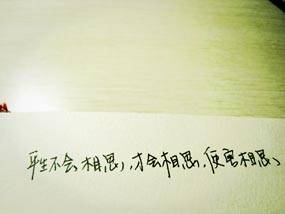 平生不会相思，才会相思，便害相思、